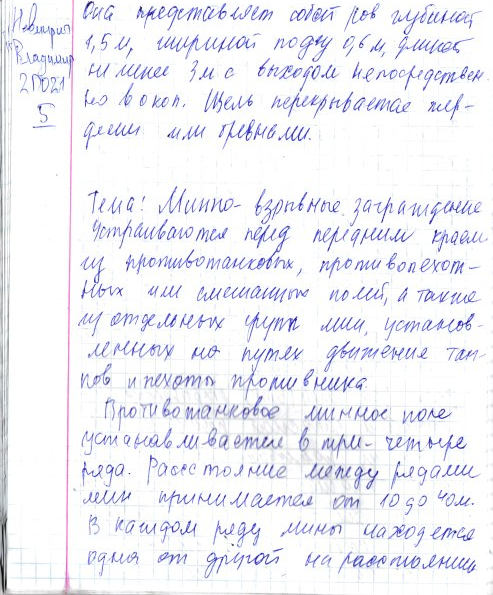 Она представляет собой ров глубиной
1,5 м, шириной по дну 0,6 м, длиной
не менее 3 м с выходом непосредствен-
но в окоп. Щель перекрывается жер-
дями или брёвнами.
Владимир
2П021
5
Тема: Минно-взрывные заграждение
Устраиваются перед передним краем
из противотанковых, противопехот-
ных или смешанных полей, а также
из отдельных групп мин, установ-
ленных на путях движение тан-
ков и пехоты противника.
Противотанковое минное поле
устанавливается в три-четыре
ряда. Расстояние между рядами
мин принимается от 10 до 40м.
В каждом ряду мины находятся
одна от другой на расстоянии